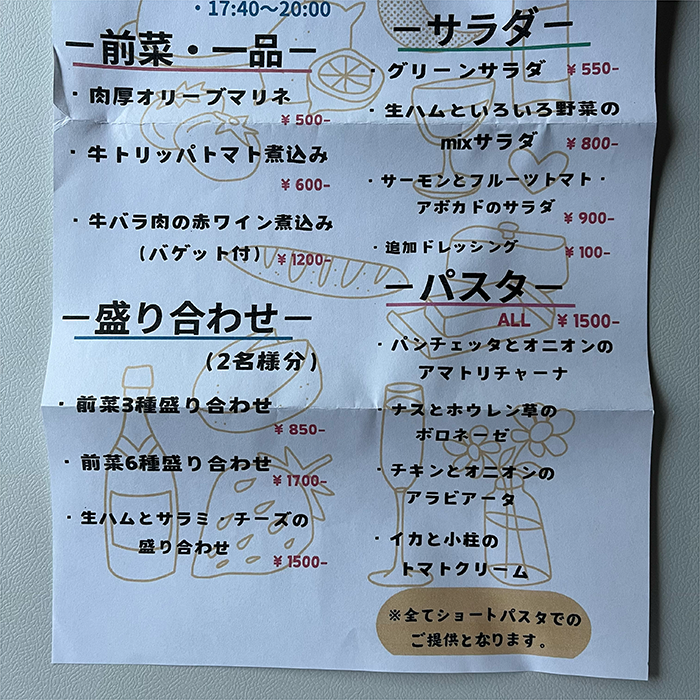 ・17:40〜20:00
－前菜・一品－
・肉厚オリーブマリネ
¥500-
・牛トリッパトマト煮込み
¥600-
・牛バラ肉の赤ワイン煮込み
(バゲット付) ¥1200-
－盛り合わせ－
(2名様分)
・前菜3種盛り合わせ
¥850-
・前菜6種盛り合わせ
¥1700-
・生ハムとサラミ・チーズの
盛り合わせ
¥1500-
－サラダ－
・グリーンサラダ ¥550-
・生ハムといろいろ野菜の
mixサラダ ¥800-
・サーモンとフルーツトマト・
アボカドのサラダ
¥900-
・追加ドレッシング ¥100-
－パスタ－
ALL ¥1500-
・パンチェッタとオニオンの
アマトリチャーナ
・ナスとホウレン草の
ボロネーゼ
・チキンとオニオンの
アラビアータ
・イカと小柱の
トマトクリーム
※全てショートパスタでの
ご提供となります。